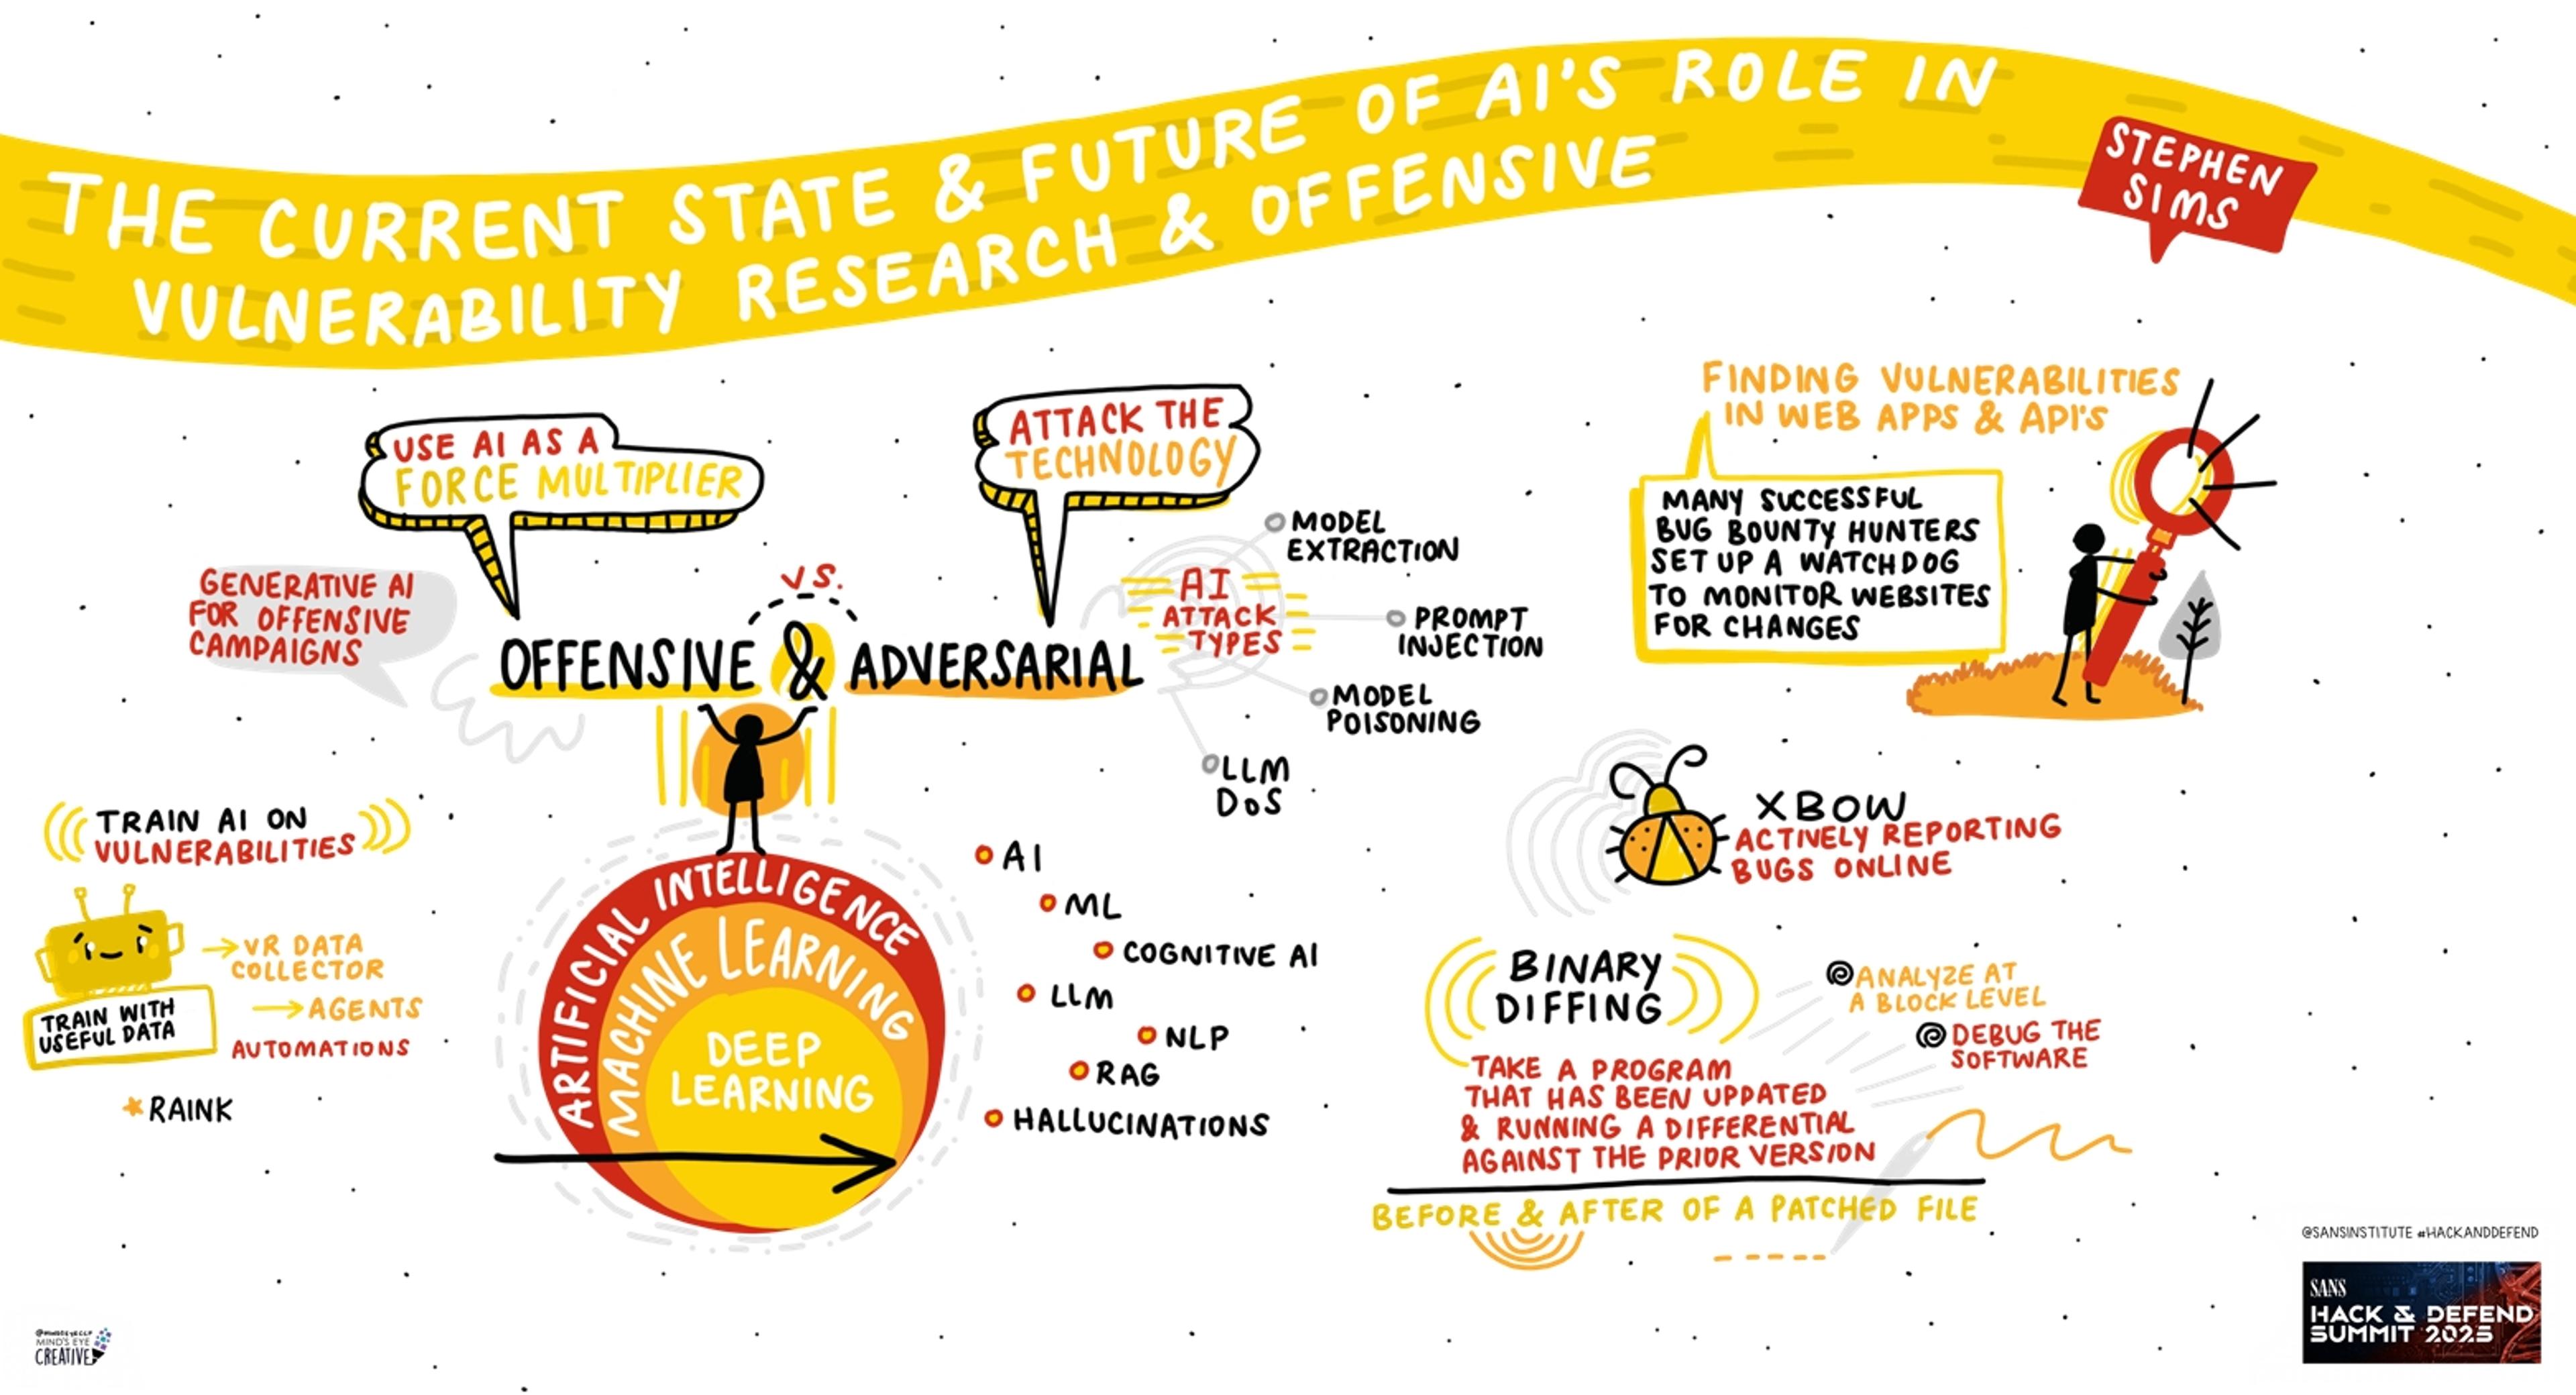 THE CURRENT STATE & FUTURE OF AI'S ROLE IN
VULNERABILITY RESEARCH & OFFENSIVE
STEPHEN
SIMS
USE AI AS A
FORCE MULTIPLIER
ATTACK THE
TECHNOLOGY
GENERATIVE AI
FOR OFFENSIVE
CAMPAIGNS
VS.
OFFENSIVE & ADVERSARIAL
AI
ATTACK
TYPES
MODEL
EXTRACTION
PROMPT
INJECTION
MODEL
POISONING
LLM
DoS
TRAIN AI ON
VULNERABILITIES
TRAIN WITH
USEFUL DATA
VR DATA
COLLECTOR
AGENTS
AUTOMATIONS
RAINK
ARTIFICIAL INTELLIGENCE
MACHINE LEARNING
DEEP
LEARNING
AI
ML
COGNITIVE AI
LLM
NLP
RAG
HALLUCINATIONS
FINDING VULNERABILITIES
IN WEB APPS & API'S
MANY SUCCESSFUL
BUG BOUNTY HUNTERS
SET UP A WATCHDOG
TO MONITOR WEBSITES
FOR CHANGES
XBOW
ACTIVELY REPORTING
BUGS ONLINE
BINARY
DIFFING
ANALYZE AT
A BLOCK LEVEL
DEBUG THE
SOFTWARE
TAKE A PROGRAM
THAT HAS BEEN UPDATED
& RUNNING A DIFFERENTIAL
AGAINST THE PRIOR VERSION
BEFORE & AFTER OF A PATCHED FILE
@SANSINSTITUTE #HACKANDDEFEND
SANS
HACK & DEFEND
SUMMIT 2025
MIND'S EYE
CREATIVE